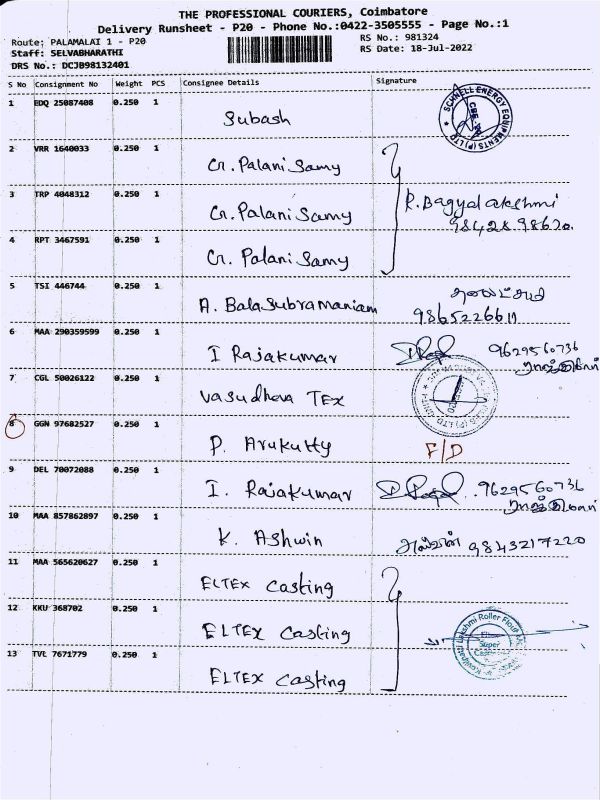 THE PROFESSIONAL COURIERS, Coimbatore
Delivery Runsheet - P20 - Phone No.:0422-3505555 - Page No.:1
Route: PALAMALAI 1 - P20
RS No.: 981324
Staff: SELVABHARATHI
RS Date: 18-Jul-2022
DRS No.: DCJB98132401
S No Consignment No Weight PCS Consignee Details Signature
1 EDQ 25087408 0.250 1 Subash
SCHNELL ENERGY EQUIPMENTS (P) LTD
2 VRR 1640033 0.250 1 Cr. Palani Samy
3 TRP 4048312 0.250 1 Cr. Palani Samy R. Bagyalakshmi
98428 98620.
4 RPT 3467591 0.250 1 Cr. Palani Samy
5 TSI 446744 0.250 1 A. Balasubramaniam
9865226611
6 MAA 290359599 0.250 1 I Rajakumar 9629560736
7 CGL 50026122 0.250 1 Vasudheva TEX
8 GGN 97682527 0.250 1 P. Arukutty F/D
9 DEL 70072088 0.250 1 I. Rajakumar 9629560736
10 MAA 857862897 0.250 1 K. Ashwin 9843217220
11 MAA 565620627 0.250 1 ELTEX Casting
12 KKU 368702 0.250 1 ELTEX Casting
Lakshmi Roller Flour
Super
13 TVL 7671779 0.250 1 ELTEX Casting